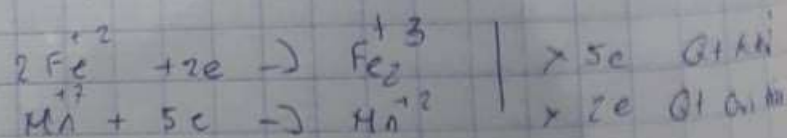 2Fe⁺² + 2e → Fe₂⁺³ | × 5e
Mn⁺⁷ + 5e → Mn⁺² | × 2e